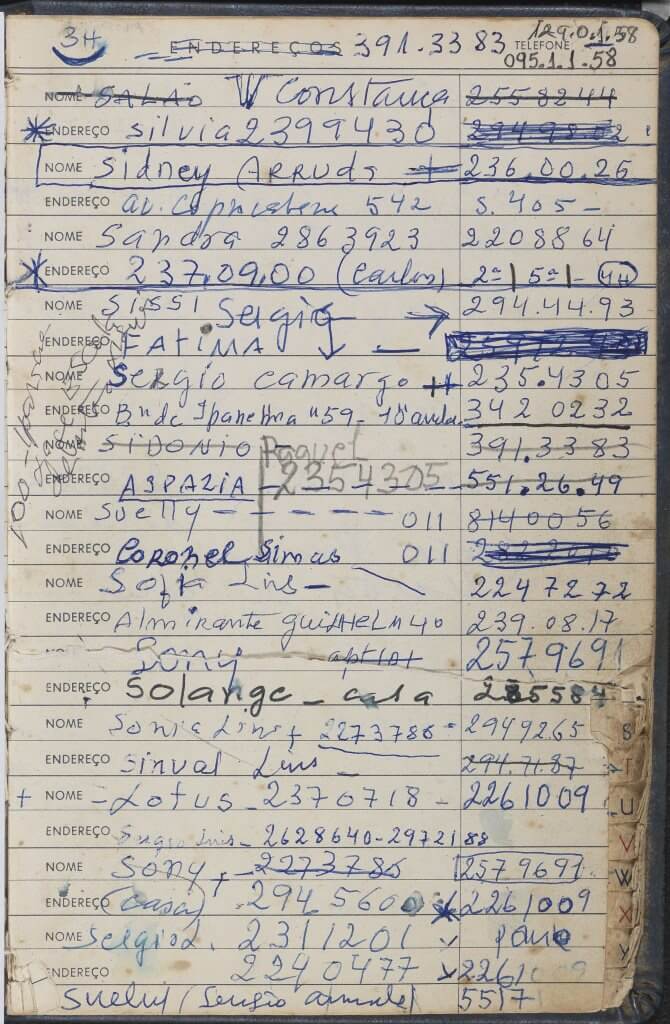 3H ENDEREÇOS 391.3383 TELEFONE 129.0.1.58
095.1.1.58
NOME SALÃO V Constança 2558244
ENDEREÇO Silvia 2399430
NOME Sidney Arruda 236.00.26
ENDEREÇO av. Copacabana 542 S. 405 -
NOME Sandra 2863923 2208864
ENDEREÇO 237.09.00 (Carlos) 2ª | 5ª | - 4H
NOME SISSI Sergio → 294.44.93
ENDEREÇO FATIMA —
NOME Sergio Camargo ++ 235.4305
ENDEREÇO Ipanema 59 - 342 0232
NOME SIDONIO Raquel 391.3383
ENDEREÇO ASPAZIA - 2354305 - 551.26.49
NOME Suelly - - - - - 011 8140056
ENDEREÇO Coronel Simas 011
NOME Sofia Lins - 2247272
ENDEREÇO Almirante GUILHEM 40 239.08.17
Sony 2579691
ENDEREÇO Solange - casa 285584
NOME Sonia Lins + 2273786 - 2949265 S
ENDEREÇO Sinval Lins - 294.71.87 T
+ NOME - Lotus - 2370718 - 2261009 U
ENDEREÇO Sergio Lins - 2628640 - 2972188 V
NOME Sony + - 2273786 2579691 W
ENDEREÇO (casa) 2945600 2261009 X
NOME Sergio L. 2311201
ENDEREÇO 2240477 2261009 Y
Suely (Sergio 5517